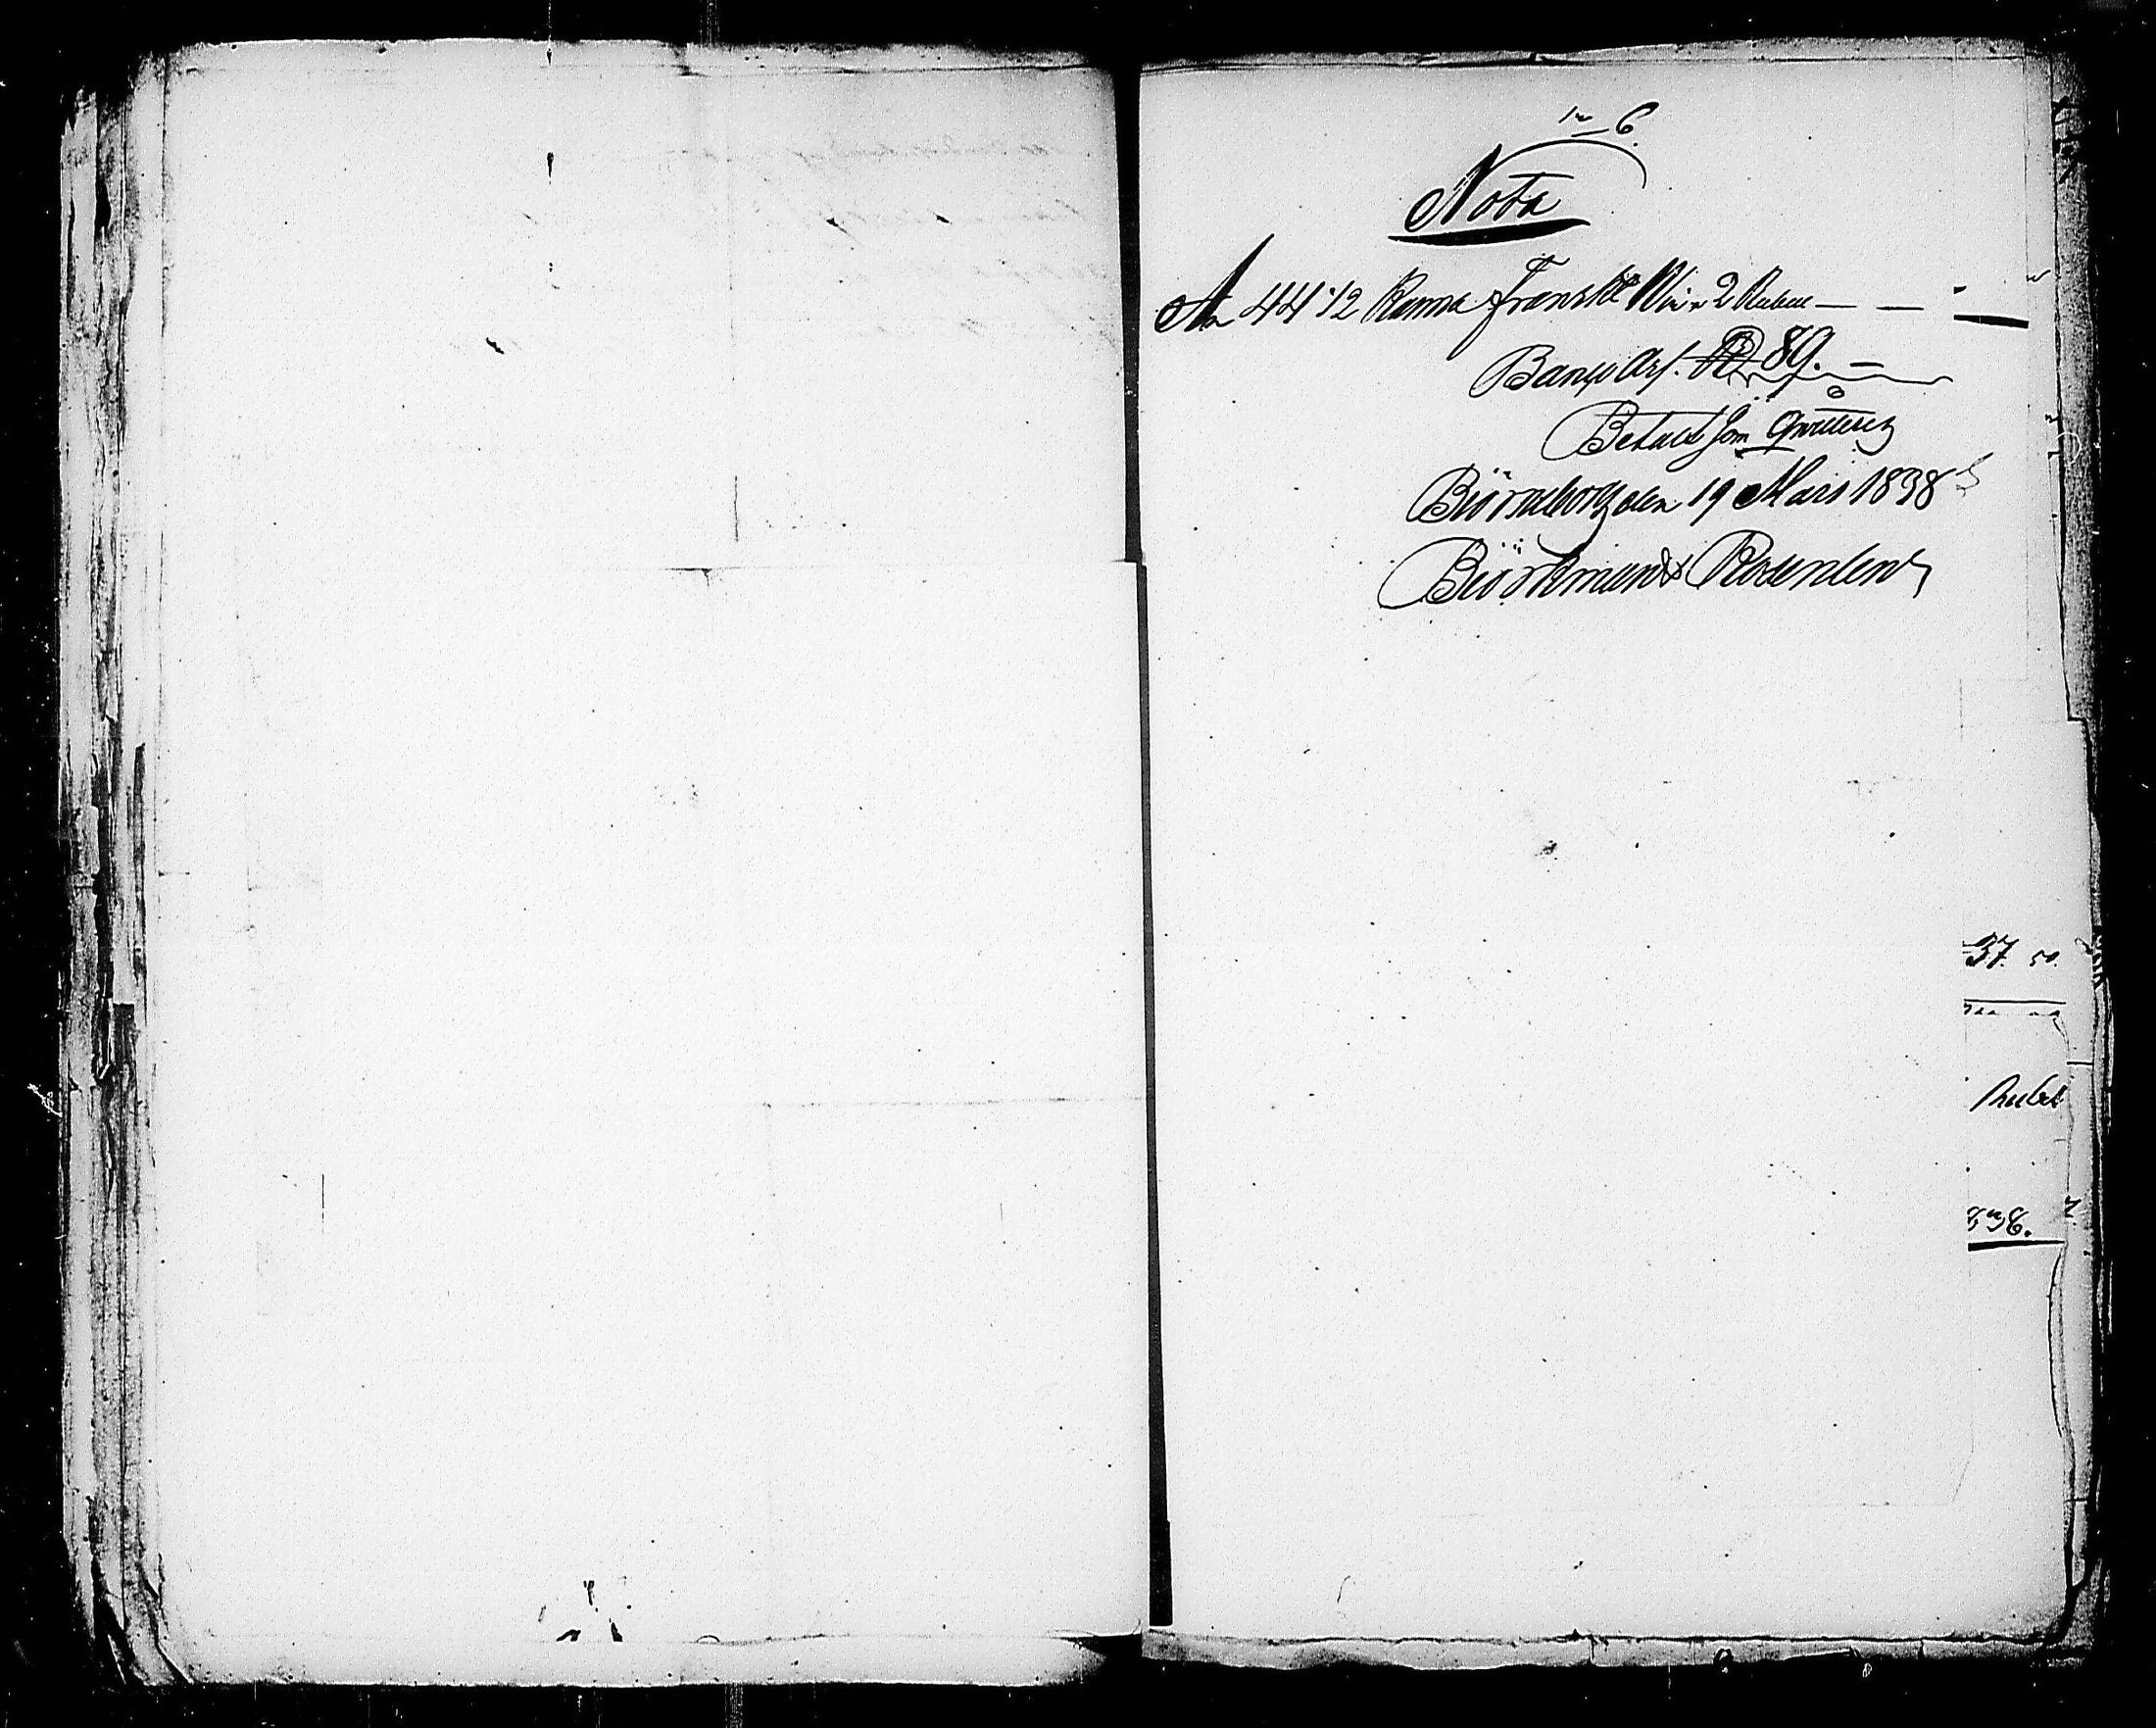 N 6.
Nota
Å 44 1/2 Kanna Franskt Win 2 Rubel — —
Banco Ass. R 89. —
Betalt som qvitteras
Björneborg den 19 Mars 1838
Björkman & Rosenlew
37. 50.
Rubel